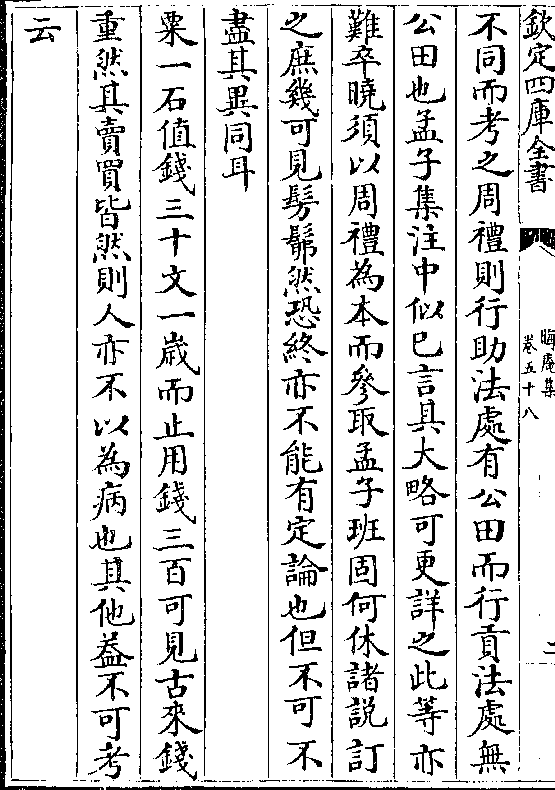 欽定四庫全書
晦庵集
卷五十八
二
不同而考之周禮則行助法處有公田而行貢法處無
公田也孟子集注中似已言其大略可更詳之此等亦
難卒曉須以周禮為本而參取孟子班固何休諸説訂
之庶幾可見髣髴然恐終亦不能有定論也但不可不
盡其異同耳
粟一石值錢三十文一歲而止用錢三百可見古來錢
重然其賣買皆然則人亦不以為病也其他葢不可考
云